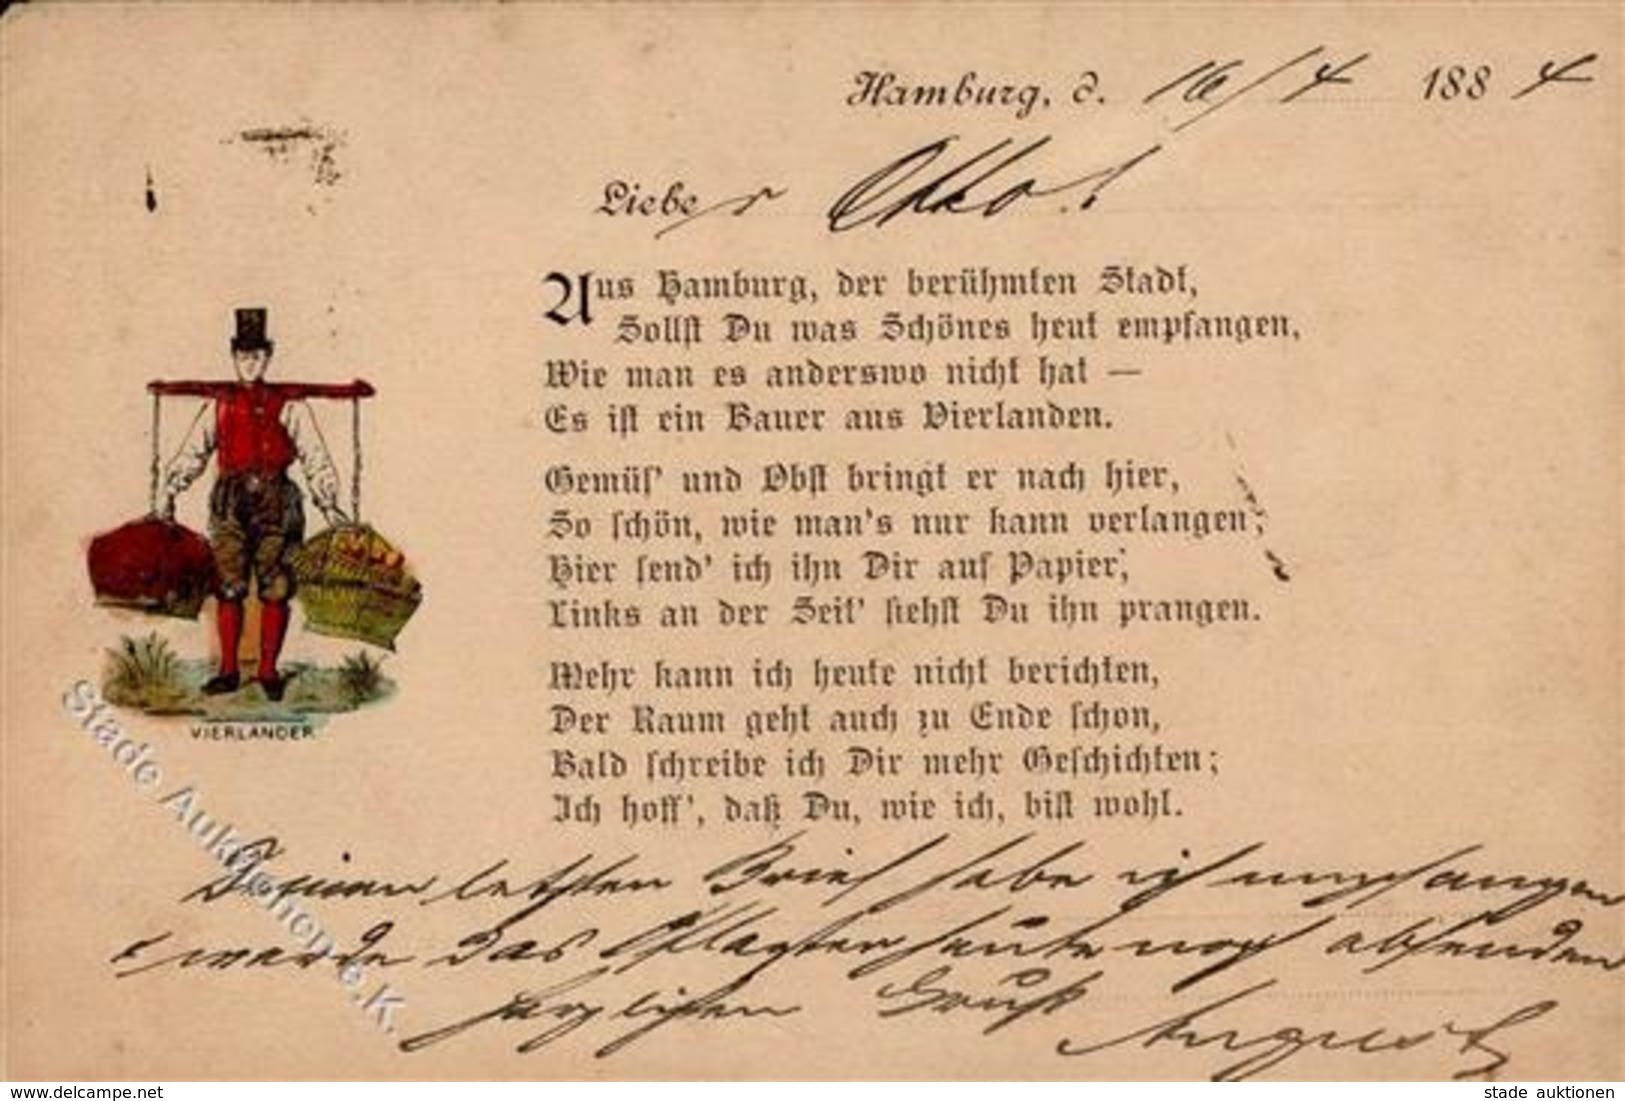 Hamburg, d. 16/4 1884
Lieber Otto!
Aus Hamburg, der berühmten Stadt,
Sollst Du was Schönes heut empfangen,
Wie man es anderswo nicht hat —
Es ist ein Bauer aus Vierlanden.
Gemüs' und Obst bringt er nach hier,
So schön, wie man's nur kann verlangen;
Hier send' ich ihn Dir auf Papier,
Links an der Seit' siehst Du ihn prangen.
Mehr kann ich heute nicht berichten,
Der Raum geht auch zu Ende schon,
Bald schreibe ich Dir mehr Geschichten;
Ich hoff', daß Du, wie ich, bist wohl.
VIERLANDER
Deinen letzten Brief habe ich empfangen
& werde das Pflaster heute noch absenden
herzlichen Gruß
August
Stade Auktionen e.K.
www.delcampe.net
stade auktionen